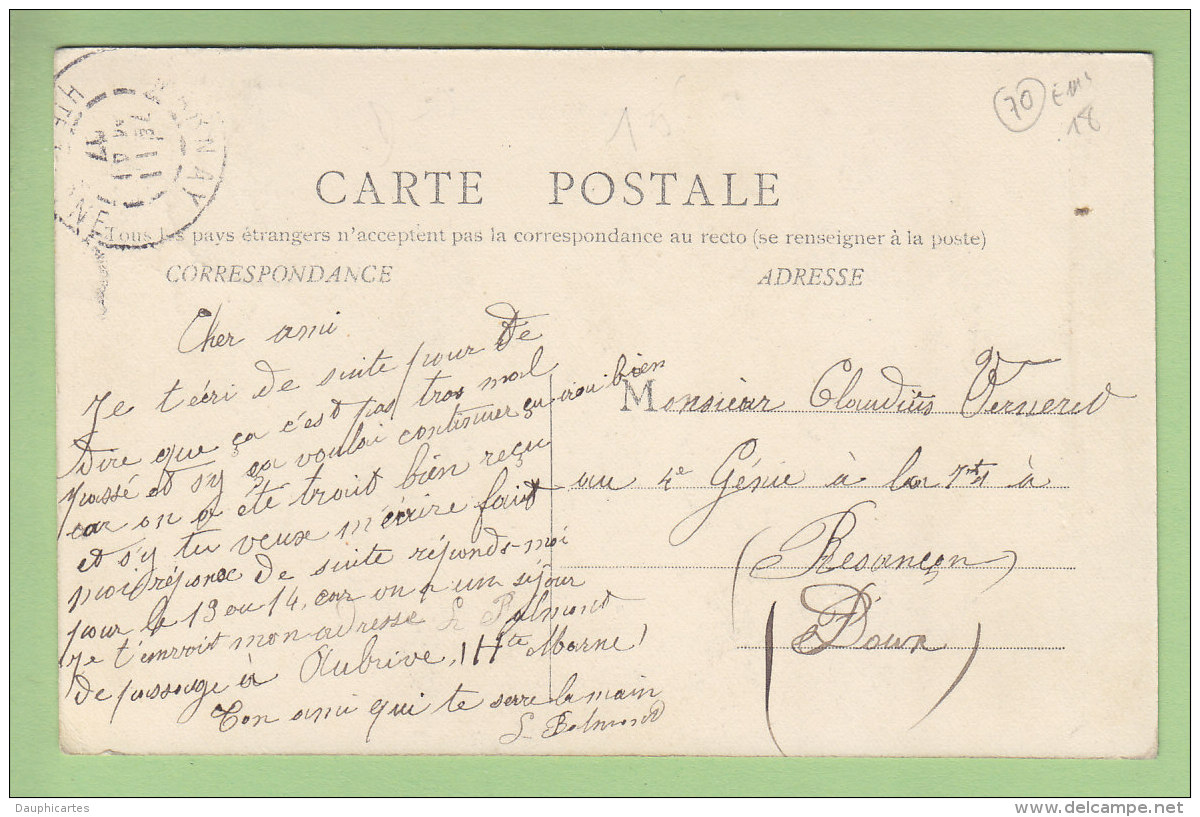 70
18
CARTE POSTALE
Tous les pays étrangers n'acceptent pas la correspondance au recto (se renseigner à la poste)
CORRESPONDANCE
ADRESSE
Cher ami
Je t'écri de suite pour te
Dire que ça c'est pas trop mal
passé et s'y ça voulai continuer ça irai bien
car on a été trait bien reçu
et s'y tu veux m'écrire fait
moi réponse de suite réponds-moi
pour le 13 ou 14, car on a un séjour
Je t'envoit mon adresse L Balmont
de passage à Aubrive, (Hte Marne)
Ton ami qui te serre la main
L Balmont
Monsieur Claudius Verneret
au 4e Génie à la 7
à
Besançon
(Doux)
Dauphicartes
delcampe.net